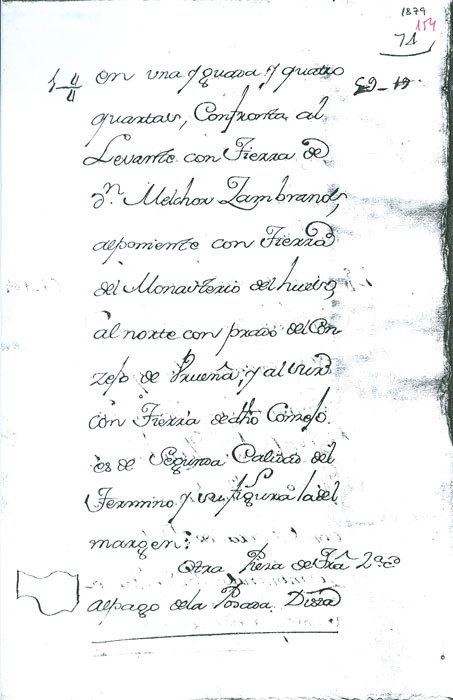 1879
154
74
1 4/4 en una yguada y quatro 29-19
quartas, Confronta al
Levante con Tierra de
Dn. Melchor Zambrano,
al poniente con Tierra
del Monasterio del hueso,
al norte con prado del Con-
zejo de Urueña, y al sur
con Tierra de dho Consejo.
es de Segunda Calidad del
Termino y su figura la del
margen:
Otra Pieza de Tra. 2a. Cd
al pago de la Posada Dista